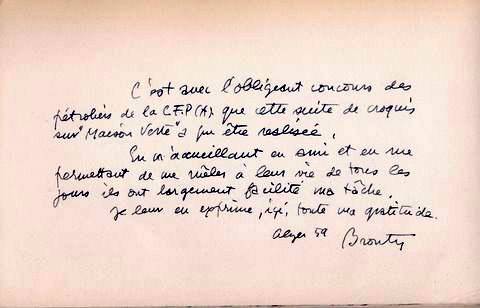 C'est avec l'obligeant concours des
pétroliers de la C.F.P(A). que cette suite de croquis
sur "Maison Verte" a pu être realisée.
En m'accueillant en ami et en me
permettant de me mêler à leur vie de tous les
jours ils ont largement facilité ma tâche.
Je leur en exprime, ici, toute ma gratitude.
Alger 59 Brouty